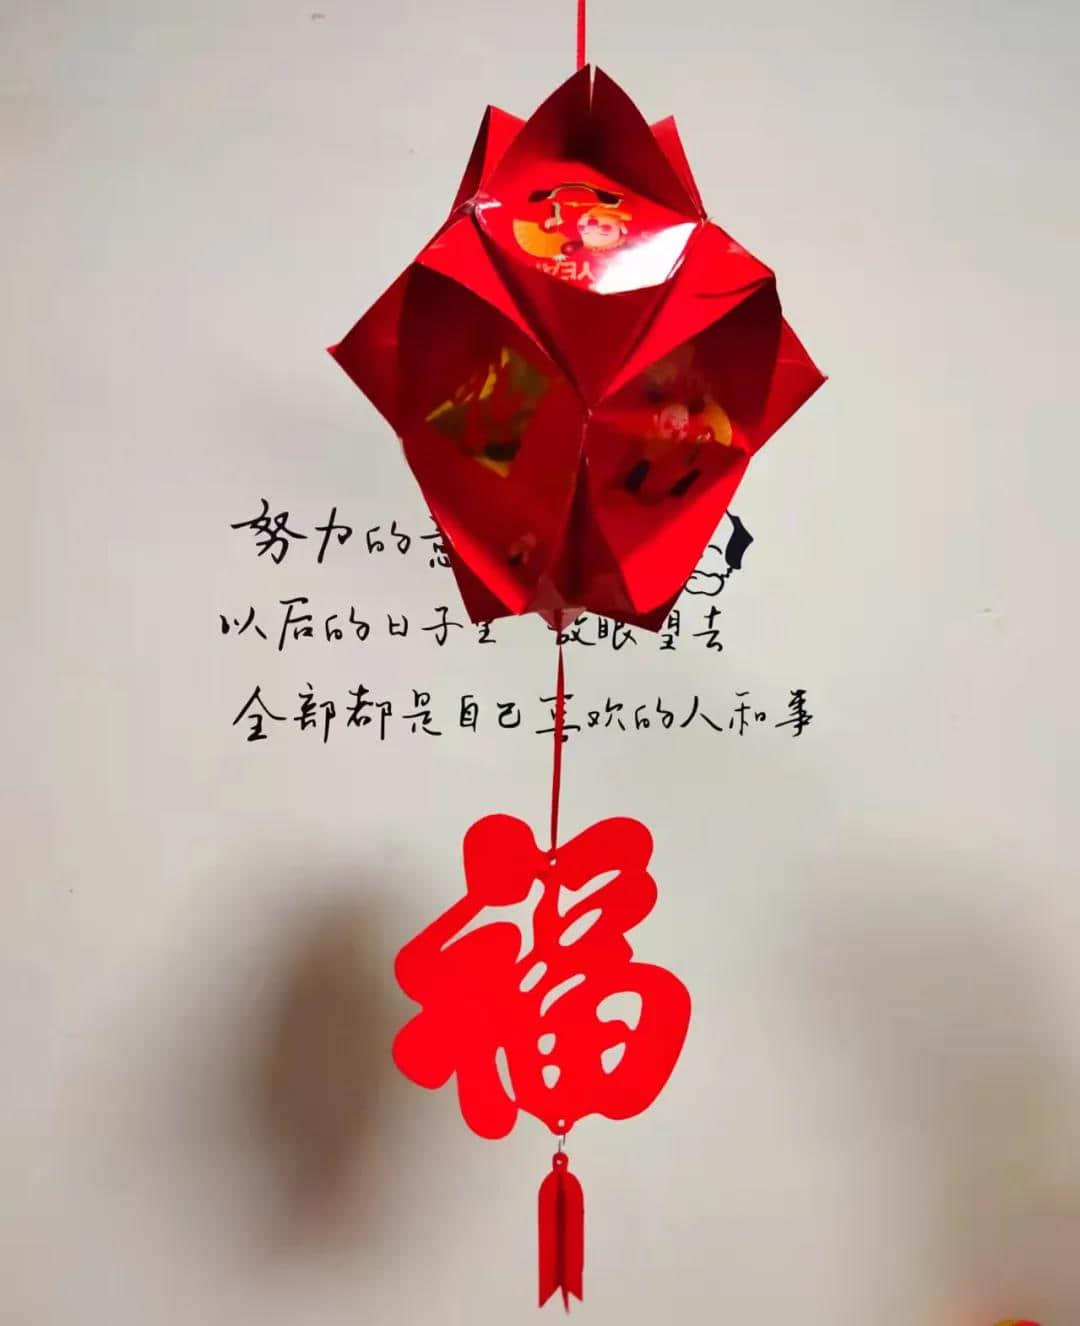 努力的意
以后的日子里 放眼望去
全部都是自己喜欢的人和事
福